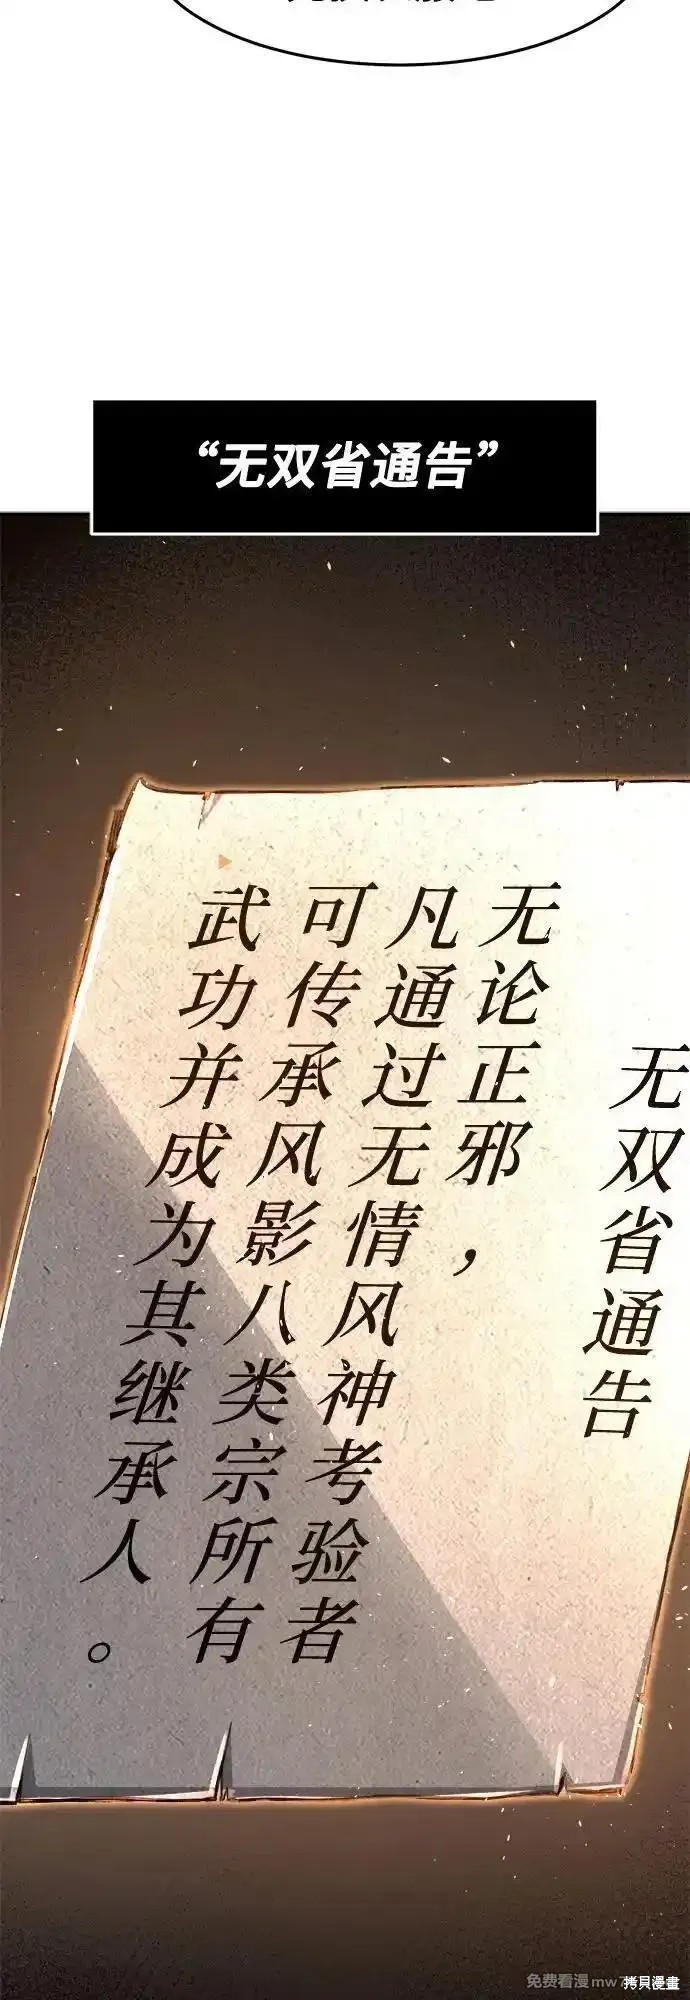 “无双省通告”
无双省通告
无论正邪，
凡通过无情风神考验者
可传承风影八类宗所有
武功并成为其继承人。
免费看漫mw7
拷貝漫畫